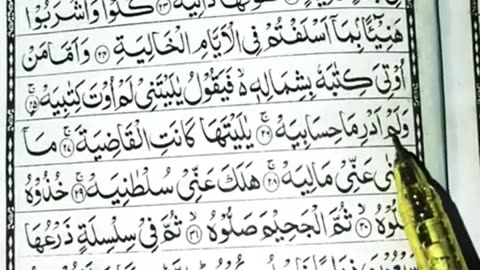 دَانِيَةٌ ۝٢٣ كُلُوْا وَاشْرَبُوْا
هَنِيْٓئًۢا بِمَآ اَسْلَفْتُمْ فِی الْاَيَّامِ الْخَالِيَةِ ۝٢٤ وَاَمَّا مَنْ
اُوْتِیَ كِتٰبَهٗ بِشِمَالِهٖ ەۙ فَيَقُوْلُ يٰلَيْتَنِیْ لَمْ اُوْتَ كِتٰبِيَهْ ۝٢٥
وَلَمْ اَدْرِ مَا حِسَابِيَهْ ۝٢٦ يٰلَيْتَهَا كَانَتِ الْقَاضِيَةَ ۝٢٧ مَآ
عَنِّیْ مَالِيَهْ ۝٢٨ هَلَكَ عَنِّیْ سُلْطٰنِيَهْ ۝٢٩ خُذُوْهُ
۝٣٠ ثُمَّ الْجَحِيْمَ صَلُّوْهُ ۝٣١ ثُمَّ فِیْ سِلْسِلَةٍ ذَرْعُهَا